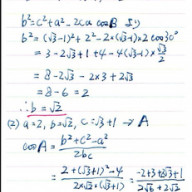 b²=c²+a²-2ca cosB
b²=(√3-1)²+2²-2×(√3-1)×2cos30°
=3-2√3+1+4-4(√3-1)×√3/2
=8-2√3-2×3+2√3
=8-6=2
∴b=√2
(2) a=2, b=√2, c=√3+1 → A
cosA = (b²+c²-a²)/(2bc)
= (2+(√3+1)²-4)/(2×√2×(√3+1)) = (-2+3+2√3+1)/(2√6+2√2)